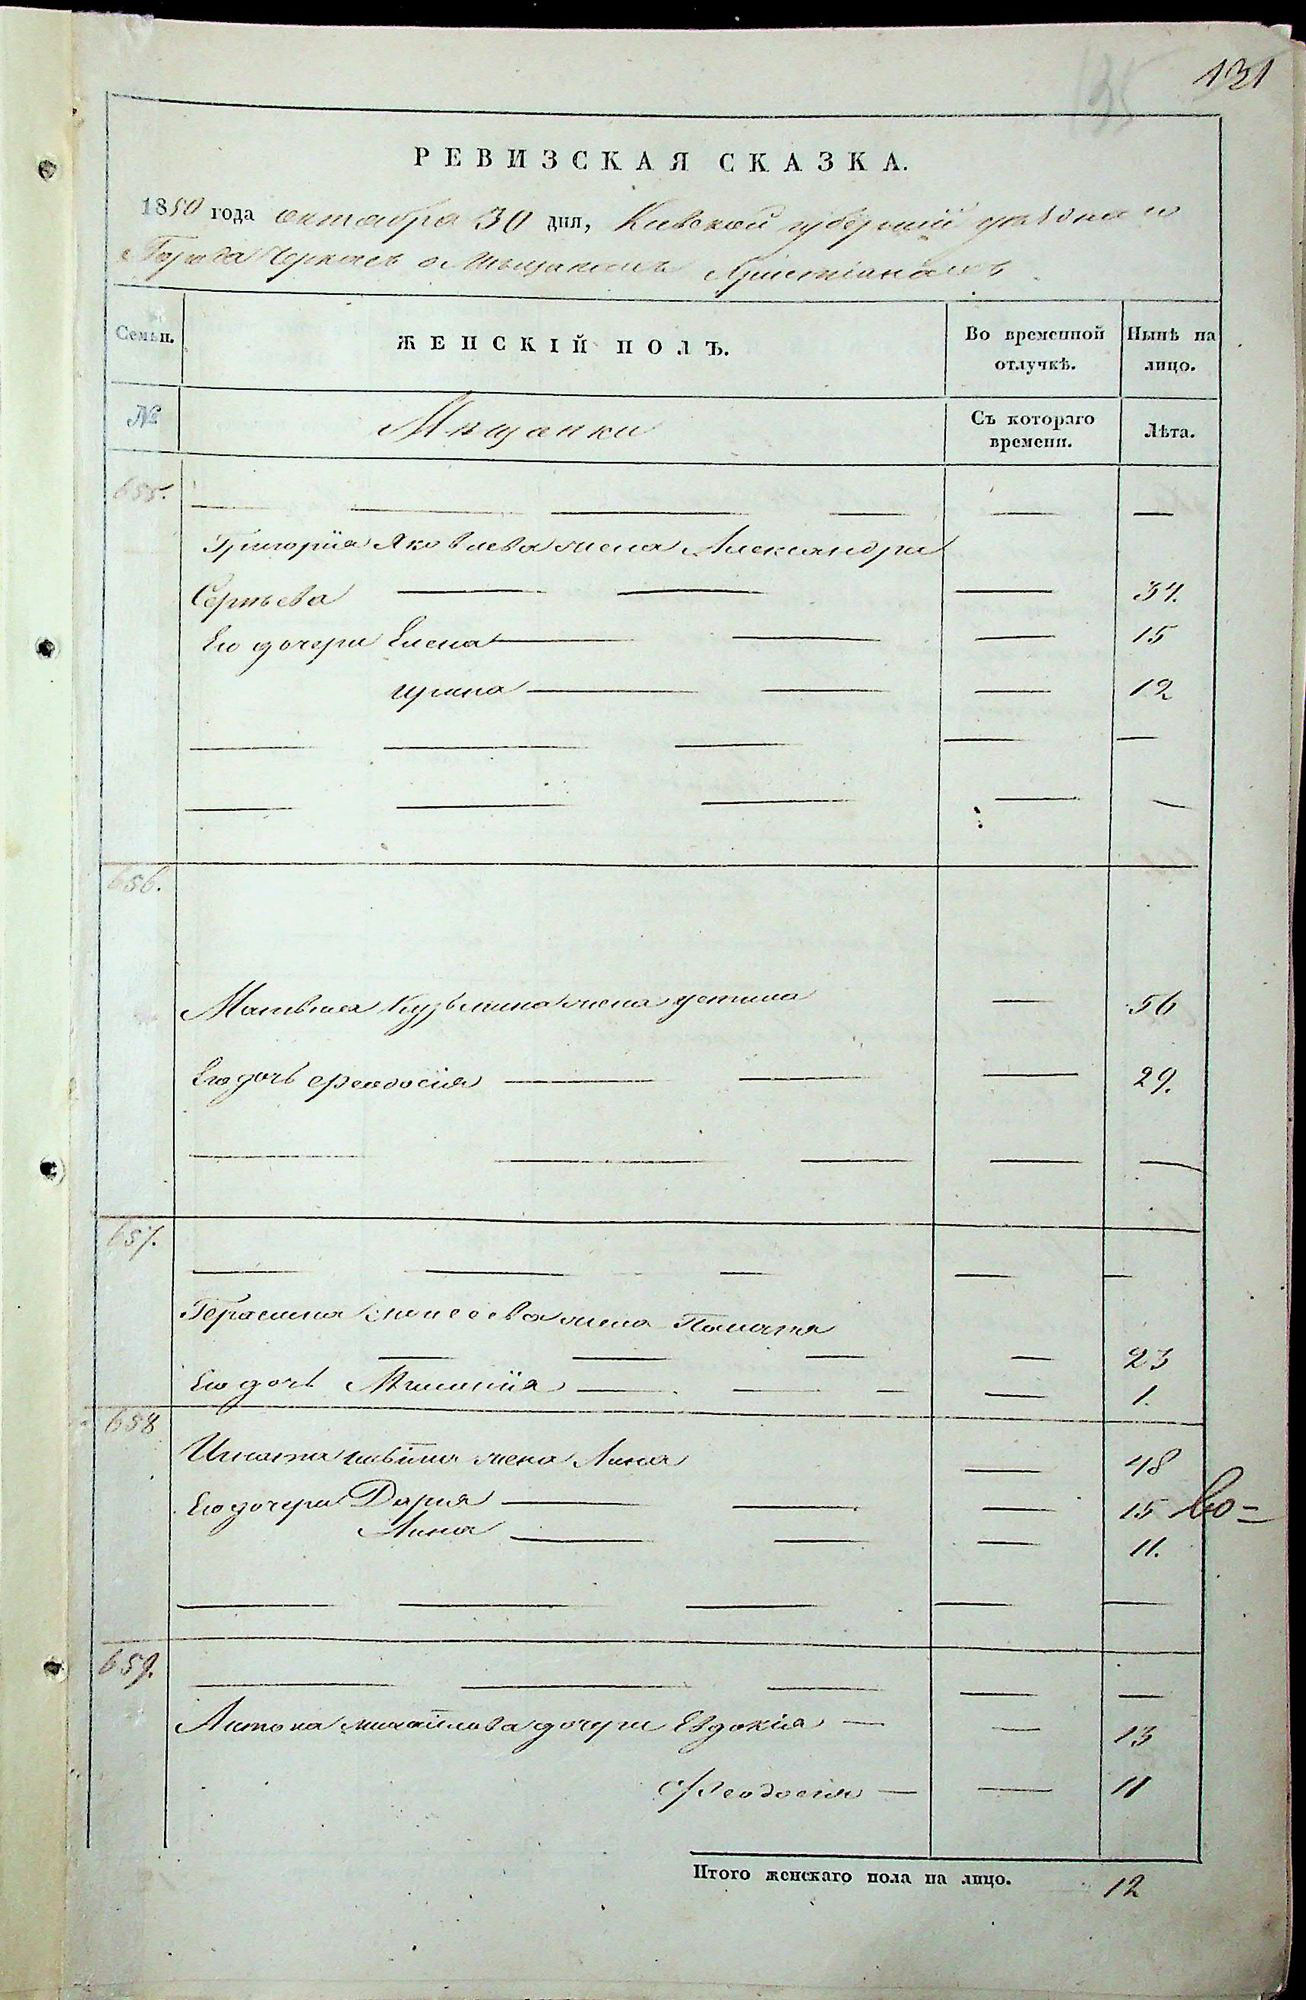 131
135
РЕВИЗСКАЯ СКАЗКА.
1850 года октября 30 дня, Киевской губернии уѣзда и
Города Черкасъ о Мѣщанахъ Христіанахъ
Семьи. ЖЕНСКІЙ ПОЛЪ. Во временной отлучкѣ. Нынѣ на лицо.
№ Мѣщанки Съ котораго времени. Лѣта.
655.
Григорія Яковлева жена Александра
Сергѣева 34.
Его дочери Елена 15
Ирина 12
656.
Матвѣя Кузьмина жена Устина 56
Его дочь Феодосія 29.
657.
Герасима жена
23
Его дочь 1.
658
Игната жена Анна 48
Его дочери Дарія 15 Во=
Анна 11.
659.
Антона Михайлова дочери Евдокія 13
Феодосія 11
Итого женскаго пола на лицо. 12